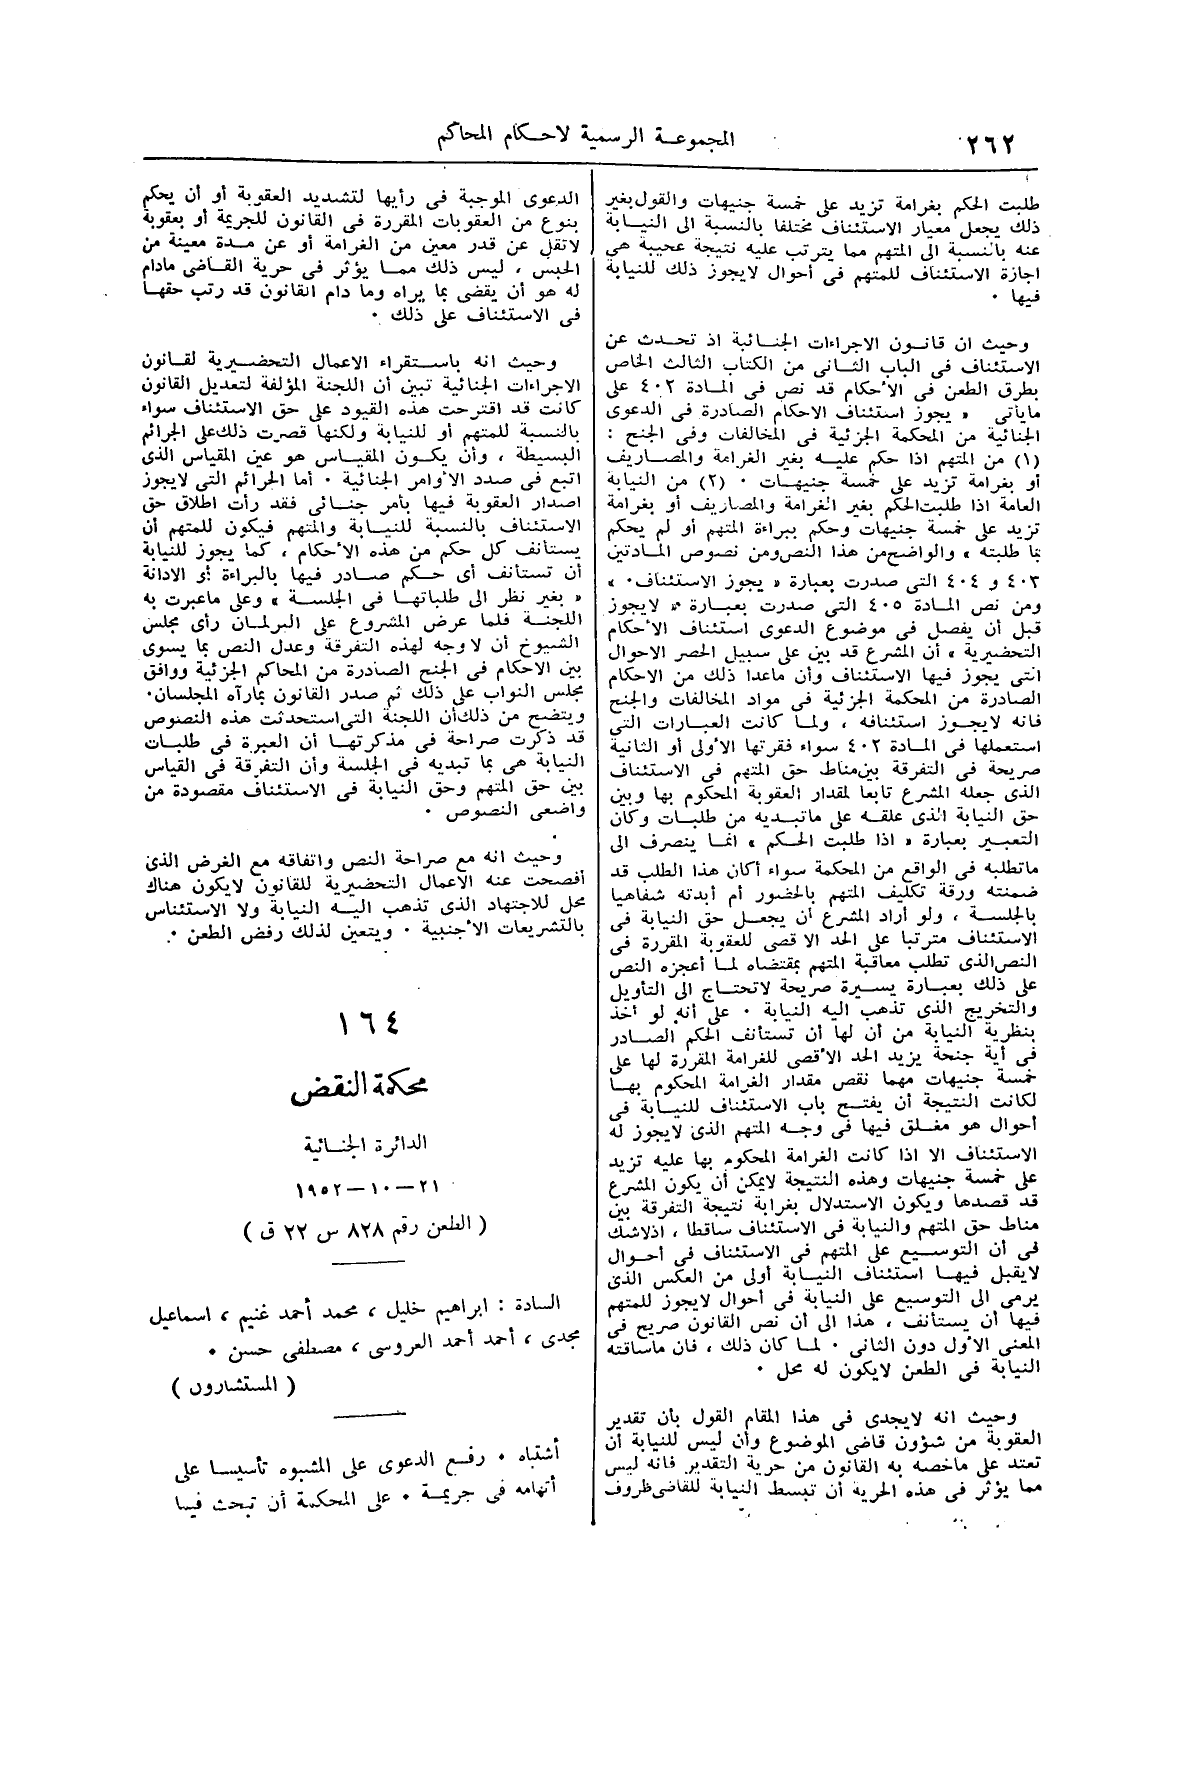 ٢٦٢
المجموعة الرسمية لاحكام المحاكم
طلبت الحكم بغرامة تزيد على خمسة جنيهات والقول بغير
ذلك يجعل معيار الاستئناف مختلفا بالنسبة الى النيابة
عنه بالنسبة الى المتهم مما يترتب عليه نتيجة عجيبة هى
اجازة الاستئناف للمتهم فى أحوال لايجوز ذلك للنيابة
فيها ٠
وحيث ان قانون الاجراءات الجنائية اذ تحدث عن
الاستئناف فى الباب الثانى من الكتاب الثالث الخاص
بطرق الطعن فى الأحكام قد نص فى المادة ٤٠٢ على
مايأتى « يجوز استئناف الاحكام الصادرة فى الدعوى
الجنائية من المحكمة الجزئية فى المخالفات وفى الجنح :
(١) من المتهم اذا حكم عليه بغير الغرامة والمصاريف
أو بغرامة تزيد على خمسة جنيهات ٠ (٢) من النيابة
العامة اذا طلبت الحكم بغير الغرامة والمصاريف أو بغرامة
تزيد على خمسة جنيهات وحكم ببراءة المتهم أو لم يحكم
بما طلبته » والواضح من هذا النص ومن نصوص المادتين
٤٠٣ و ٤٠٤ التى صدرت بعبارة « يجوز الاستئناف ٠ »
ومن نص المادة ٤٠٥ التى صدرت بعبارة « لايجوز
قبل أن يفصل فى موضوع الدعوى استئناف الأحكام
التحضيرية » أن المشرع قد بين على سبيل الحصر الاحوال
التى يجوز فيها الاستئناف وأن ماعدا ذلك من الاحكام
الصادرة من المحكمة الجزئية فى مواد المخالفات والجنح
فانه لايجوز استئنافه ، ولما كانت العبارات التى
استعملها فى المادة ٤٠٢ سواء فقرتها الأولى أو الثانية
صريحة فى التفرقة بين مناط حق المتهم فى الاستئناف
الذى جعله المشرع تابعا لمقدار العقوبة المحكوم بها وبين
حق النيابة الذى علقه على ماتبديه من طلبات وكان
التعبير بعبارة « اذا طلبت الحكم » انما ينصرف الى
ماتطلبه فى الواقع من المحكمة سواء أكان هذا الطلب قد
ضمنته ورقة تكليف المتهم بالحضور أم أبدته شفاهيا
بالجلسة ، ولو أراد المشرع أن يجعل حق النيابة فى
الاستئناف مترتبا على الحد الاقصى للعقوبة المقررة فى
النص الذى تطلب معاقبة المتهم بمقتضاه لما أعجزه النص
على ذلك بعبارة يسيرة صريحة لاتحتاج الى التأويل
والتخريج الذى تذهب اليه النيابة ٠ على أنه لو أخذ
بنظرية النيابة من أن لها أن تستأنف الحكم الصادر
فى أية جنحة يزيد الحد الأقصى للغرامة المقررة لها على
خمسة جنيهات مهما نقص مقدار الغرامة المحكوم بها
لكانت النتيجة أن يفتح باب الاستئناف للنيابة فى
أحوال هو مغلق فيها فى وجه المتهم الذى لايجوز له
الاستئناف الا اذا كانت الغرامة المحكوم بها عليه تزيد
على خمسة جنيهات وهذه النتيجة لايمكن أن يكون المشرع
قد قصدها ويكون الاستدلال بغرابة نتيجة التفرقة بين
مناط حق المتهم والنيابة فى الاستئناف ساقطا ، اذلاشك
فى أن التوسيع على المتهم فى الاستئناف فى أحوال
لايقبل فيها استئناف النيابة أولى من العكس الذى
يرمى الى التوسيع على النيابة فى أحوال لايجوز للمتهم
فيها أن يستأنف ، هذا الى أن نص القانون صريح فى
المعنى الأول دون الثانى ٠ لما كان ذلك ، فان ماساقته
النيابة فى الطعن لايكون له محل ٠
وحيث انه لايجدى فى هذا المقام القول بأن تقدير
العقوبة من شؤون قاضى الموضوع وأن ليس للنيابة أن
تعتد على ماخصه به القانون من حرية التقدير. فانه ليس
مما يؤثر فى هذه الحرية أن تبسط النيابة للقاضى ظروف
الدعوى الموجبة فى رأيها لتشديد العقوبة أو أن يحكم
بنوع من العقوبات المقررة فى القانون للجريمة أو بعقوبة
لاتقل عن قدر معين من الغرامة أو عن مدة معينة من
الحبس ، ليس ذلك مما يؤثر فى حرية القاضى مادام
له هو أن يقضى بما يراه وما دام القانون قد رتب حقها
فى الاستئناف على ذلك ٠
وحيث انه باستقراء الاعمال التحضيرية لقانون
الاجراءات الجنائية تبين أن اللجنة المؤلفة لتعديل القانون
كانت قد اقترحت هذه القيود على حق الاستئناف سواء
بالنسبة للمتهم أو للنيابة ولكنها قصرت ذلك على الجرائم
البسيطة ، وأن يكون المقياس هو عين المقياس الذى
اتبع فى صدد الأوامر الجنائية ٠ أما الجرائم التى لايجوز
اصدار العقوبة فيها بأمر جنائى فقد رأت اطلاق حق
الاستئناف بالنسبة للنيابة والمتهم فيكون للمتهم أن
يستأنف كل حكم من هذه الأحكام ، كما يجوز للنيابة
أن تستأنف أى حكم صادر فيها بالبراءة أو الادانة
« بغير نظر الى طلباتها فى الجلسة » وعلى ماعبرت به
اللجنة فلما عرض المشروع على البرلمان رأى مجلس
الشيوخ أن لاوجه لهذه التفرقة وعدل النص بما يسوى
بين الاحكام فى الجنح الصادرة من المحاكم الجزئية ووافق
مجلس النواب على ذلك ثم صدر القانون بمارآه المجلسان ٠
ويتضح من ذلك أن اللجنة التى استحدثت هذه النصوص
قد ذكرت صراحة فى مذكرتها أن العبرة فى طلبات
النيابة هى بما تبديه فى الجلسة وأن التفرقة فى القياس
بين حق المتهم وحق النيابة فى الاستئناف مقصودة من
واضعى النصوص ٠
وحيث انه مع صراحة النص واتفاقه مع الغرض الذى
أفصحت عنه الاعمال التحضيرية للقانون لايكون هناك
محل للاجتهاد الذى تذهب اليه النيابة ولا الاستئناس
بالتشريعات الأجنبية ٠ ويتعين لذلك رفض الطعن ٠
١٦٤
محكمة النقض
الدائرة الجنائية
٢١ — ١٠ — ١٩٥٢
( الطعن رقم ٨٢٨ س ٢٢ ق )
السادة : ابراهيم خليل ، محمد أحمد غنيم ، اسماعيل
مجدى ، أحمد أحمد العروسى ، مصطفى حسن ٠
( المستشارون )
أشتباه ٠ رفع الدعوى على المشبوه تأسيسا على
أتهامه فى جريمة ٠ على المحكمة أن تبحث فيما